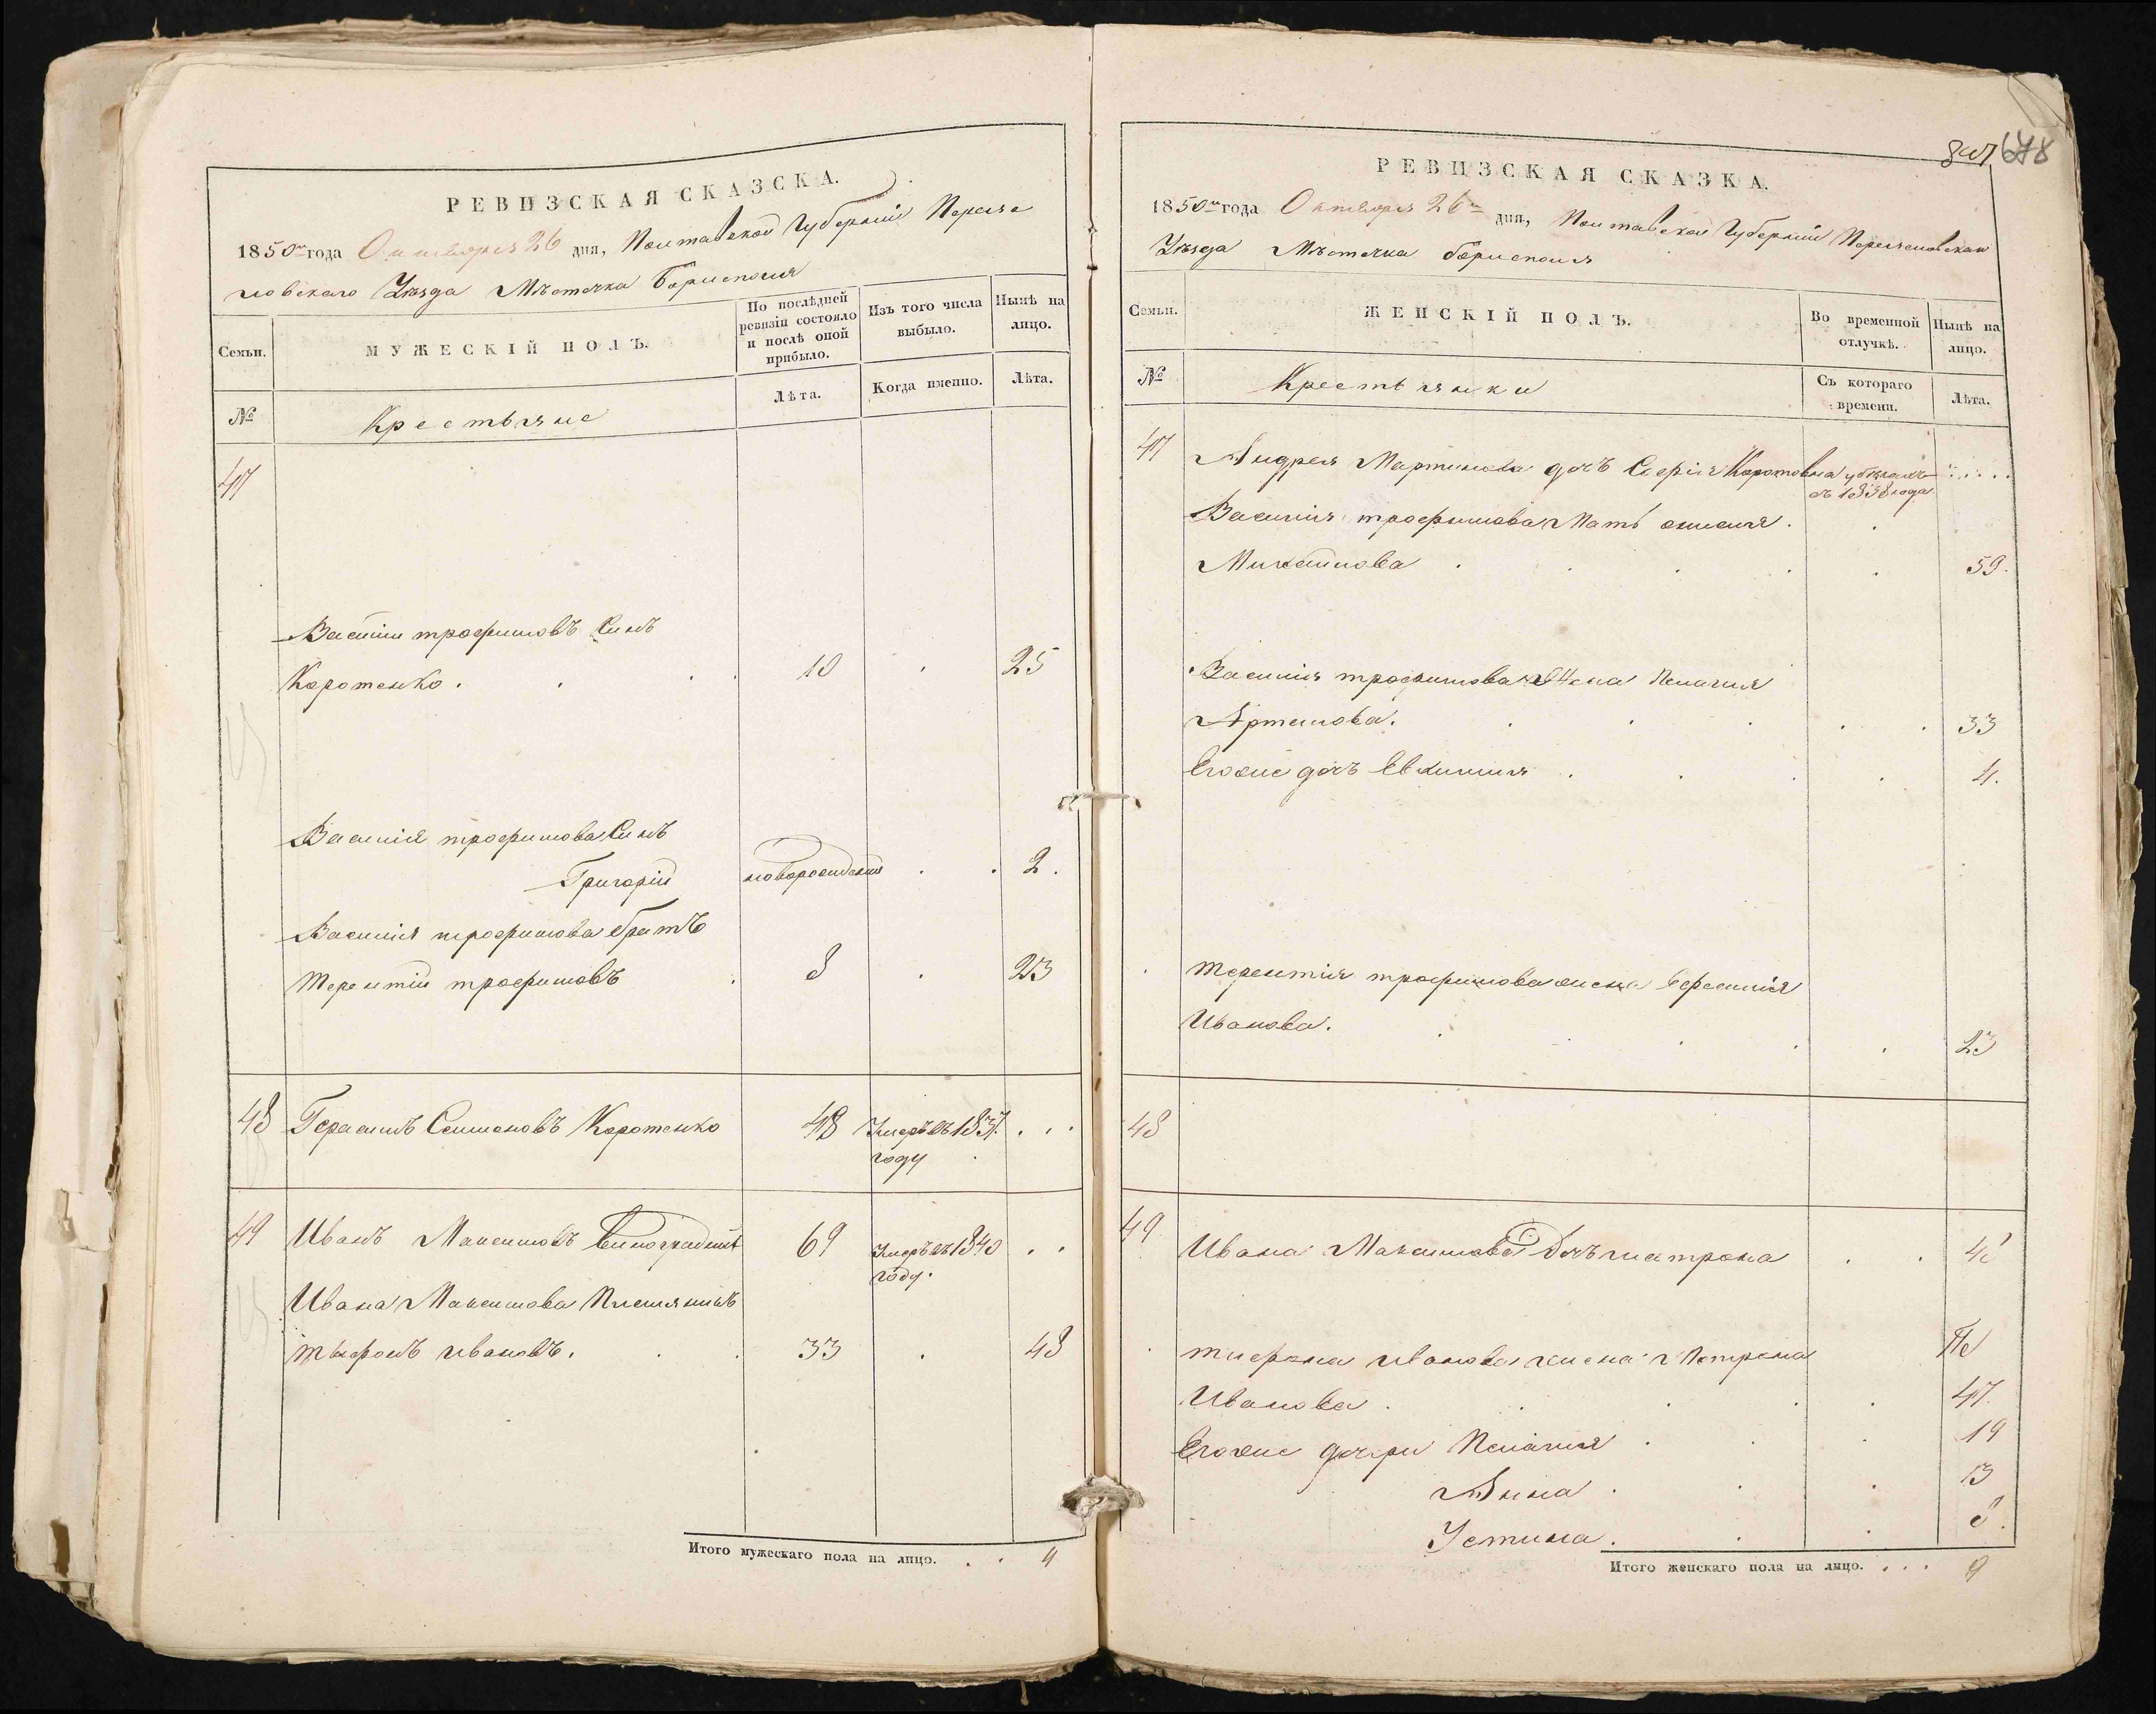 РЕВИЗСКАЯ СКАЗСКА.
1850го года Октября 26 дня, Полтавской Губерніи Переяс
ловскаго Уѣзда Мѣстечка Борисполя
Семьи.
МУЖЕСКІЙ ПОЛЪ.
По послѣдней ревизіи состояло и послѣ оной прибыло.
Изъ того числа выбыло.
Нынѣ на лицо.
№
Крестьяне
Лѣта.
Когда именно.
Лѣта.
47
Василій трофимовъ Синъ
Коротенко . . . . 10 . 25
Василія трофимова Синъ
Григорій новорожденій . . 2.
Василія трофимова братъ
терентій трофимовъ . 8 . 23
48 Герасимъ Семеновъ Коротенко 48 Умеръ въ 1837. . . .
году
49 Иванъ Максимовъ Виноградній 69 Умеръ въ 1840 . .
году.
Ивана Максимова Племянникъ
тыфонъ ивановъ. . . 33 . 48
Итого мужескаго пола на лицо. . . 4
678
РЕВИЗСКАЯ СКАЗКА.
1850го года Октября 26го дня, Полтавской Губерніи Переясловскаго
Уѣзда Мѣстечка Борисполя
Семьи.
ЖЕНСКІЙ ПОЛЪ.
Во временной отлучкѣ.
Нынѣ на лицо.
№
Крестьянки
Съ котораго времени.
Лѣта.
47 Андрея Мартинова дочъ
съ 1838 года.
Василія трофимова Мать
Михайлова . . . . . 59.
Василія трофимова жена Пелагия
Артемова. . . . . . 33
Егоже дочъ Евхимия . . . . 4.
терентія трофимова жена
Иванова. . . . . . 23
48
49 Ивана Максимова Дочъ матрона . .
тифона иванова жена Матрона
Иванова . . . . . 47.
Егоже дочери Пелагия . . . 19
Анна . . . 13
Устина. . . 8.
Итого женскаго пола на лицо. . . . 9